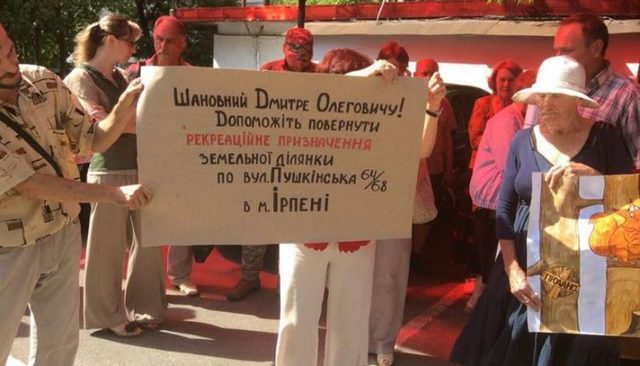 Шановний Дмитре Олеговичу!
Допоможіть повернути
рекреаційне призначення
земельної ділянки
по вул. Пушкінська 64/68
в м. Ірпені